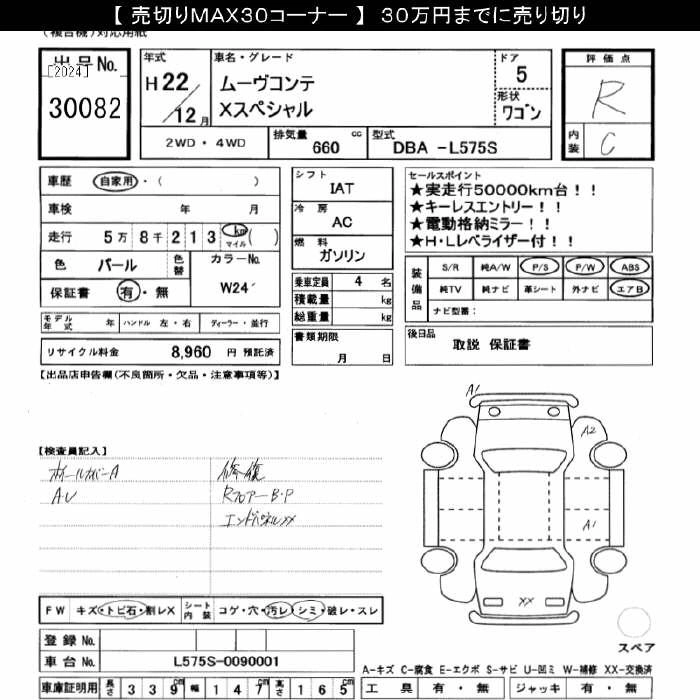 【 売切りMAX30コーナー 】 30万円までに売り切り
(複合機)対応用紙
出品No.
[2024]
30082
年式
H 22 / 12 月
車名・グレード
ムーヴコンテ
Xスペシャル
ドア
5
形状
ワゴン
評価点
R
内装
C
2WD・4WD
排気量
660 cc
型式
DBA -L575S
車歴 自家用・( )
車検 年 月
走行 5万 8千 2 1 3 km マイル ( )
色 パール 色替
カラーNo.
W24
保証書 有・無
モデル年式 年 ハンドル 左・右 ディーラー・並行
リサイクル料金 8,960 円 預託済
シフト
IAT
冷房
AC
燃料
ガソリン
乗車定員 4 名
積載量 kg
総重量 kg
書類期限
月 日
セールスポイント
★実走行50000km台!!
★キーレスエントリー!!
★電動格納ミラー!!
★H・Lレベライザー付!!
装備品
S/R 純A/W P/S P/W ABS
純TV 純ナビ 革シート 外ナビ エアB
ナビ型番:
後日品
取説 保証書
【出品店申告欄(不良箇所・欠品・注意事項等)】
【検査員記入】
ホイールカバーA
AU
修復
Rフロアー B・P
エンドパネルXX
A1
A2
A1
XX
スペア
FW キズ・トビ石・割レX
シート内装 コゲ・穴・汚レ・シミ・破レ・スレ
登録No.
車台No. L575S-0090001
車庫証明用 長さ 3 3 9 cm 幅 1 4 7 cm 高さ 1 6 5 cm
A-キズ C-腐食 E-エクボ S-サビ U-凹ミ W-補修 XX-交換済
工具 有・無 ジャッキ 有・無